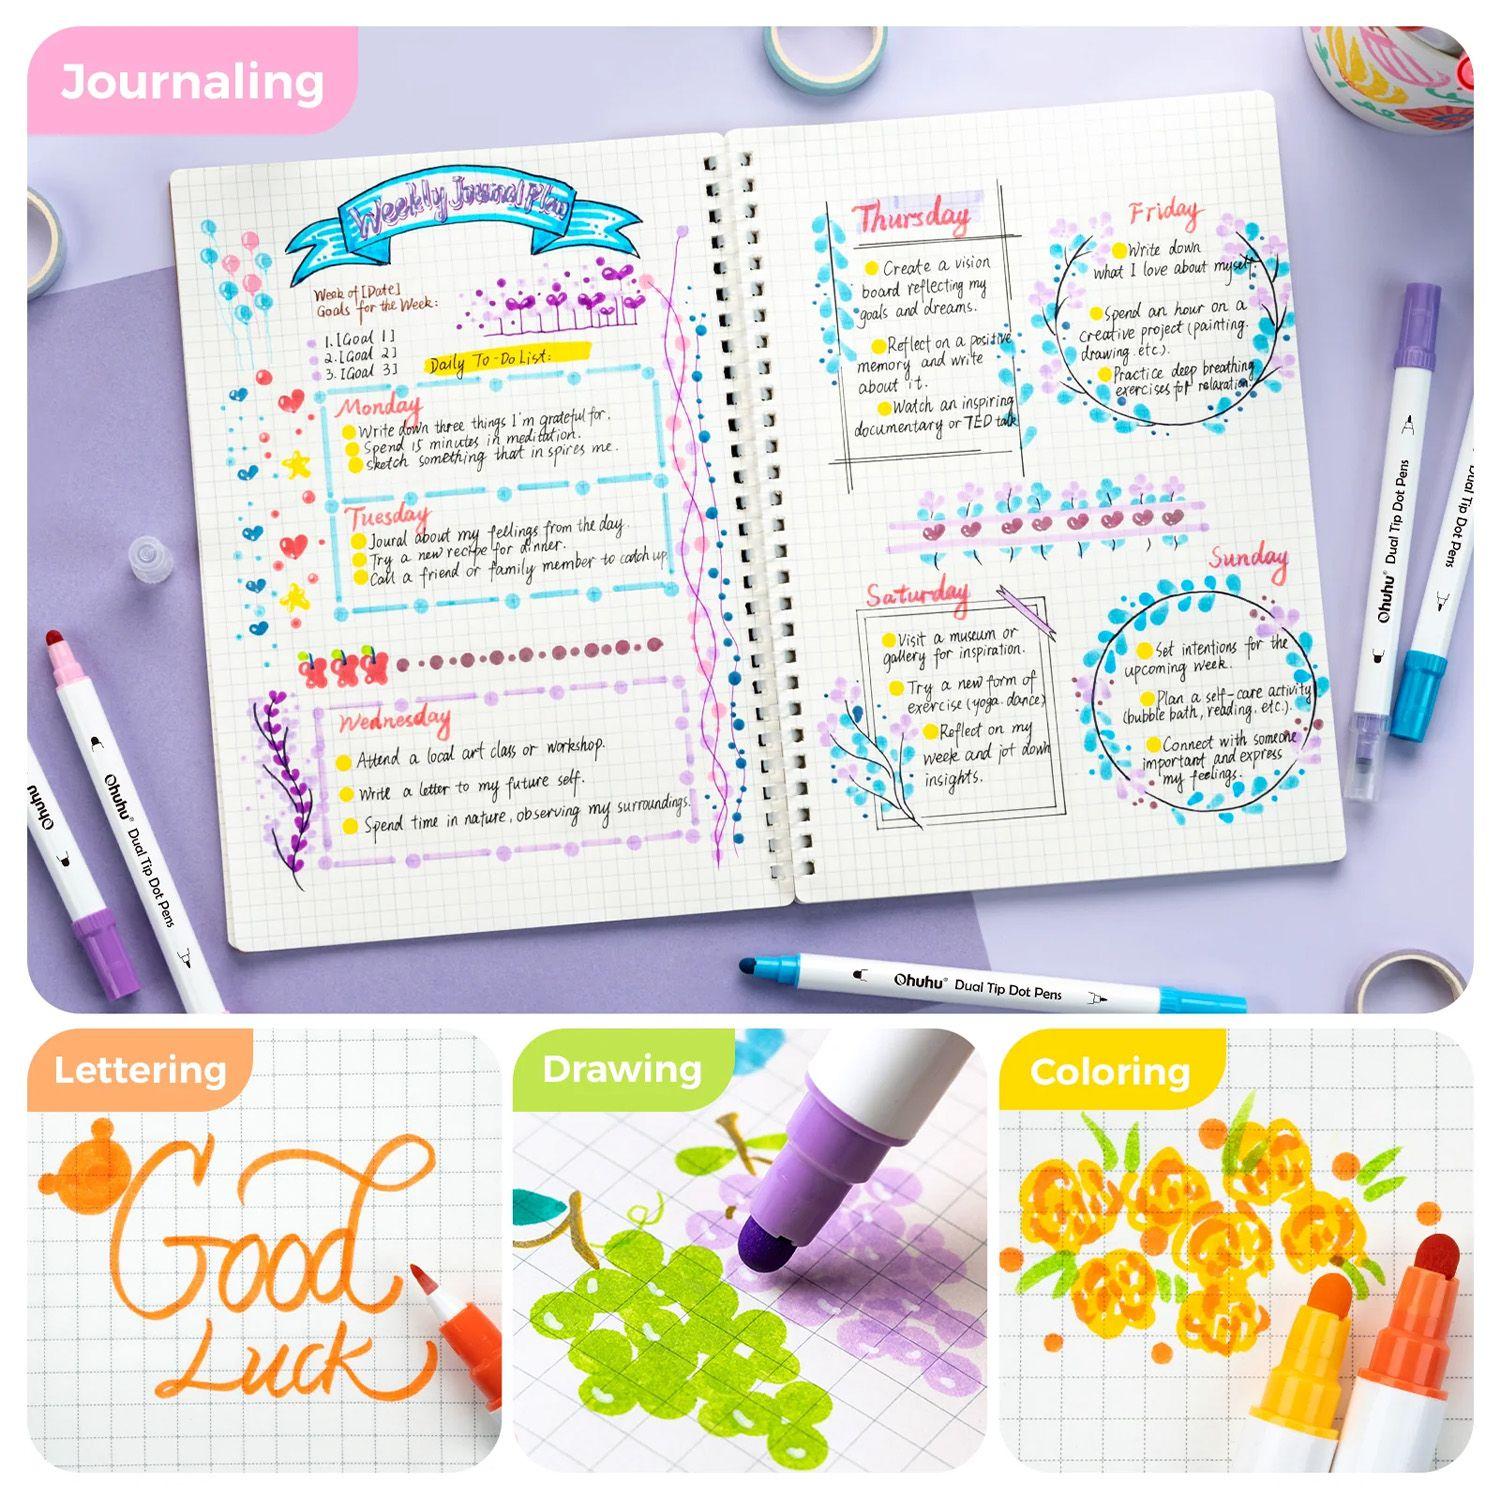 Journaling
Weekly Journal Plan
Week of [Date]
Goals for the Week:
1. [Goal 1]
2. [Goal 2]
3. [Goal 3]
Daily To-Do List:
Monday
Write down three things I'm grateful for.
Spend 15 minutes in meditation.
Sketch something that inspires me.
Tuesday
Joural about my feelings from the day.
Try a new recipe for dinner.
Call a friend or family member to catch up.
Wednesday
Attend a local art class or workshop.
Write a letter to my future self.
Spend time in nature, observing my surroundings.
Thursday
Create a vision
board reflecting my
goals and dreams.
Reflect on a positive
memory and write
about it.
Watch an inspiring
documentary or TED talk
Friday
Write down
what I love about myself.
Spend an hour on a
creative project (painting.
drawing. etc.).
Practice deep breathing
exercises for relaxation.
Saturday
Visit a museum or
gallery for inspiration.
Try a new form of
exercise (yoga. dance)
Reflect on my
week and jot down
insights.
Sunday
Set intentions for the
upcoming week.
Plan a self-care activity
(bubble bath, reading. etc.).
Connect with someone
important and express
my feelings.
Ohuhu
Ohuhu® Dual Tip Dot Pens
Ohuhu® Dual Tip Dot Pens
Ohuhu® Dual Tip Dot Pens
Dual Tip Dot Pens
Lettering
Good
Luck
Drawing
Coloring